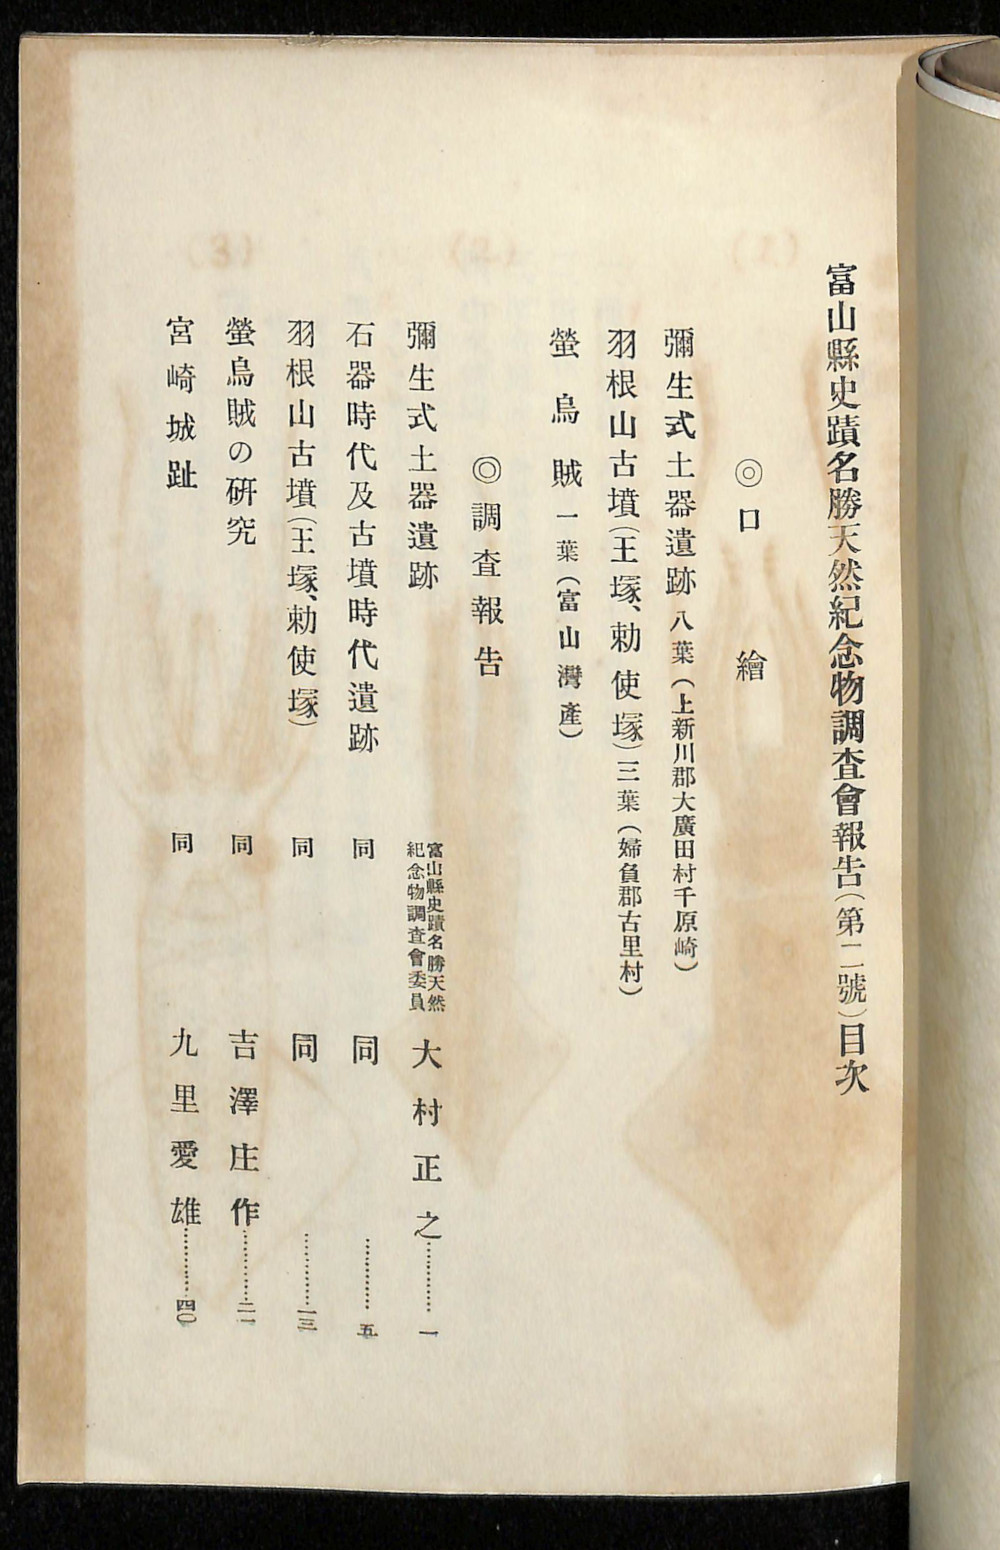 富山縣史蹟名勝天然紀念物調査會報告(第二號)目次
◎口繪
彌生式土器遺跡八葉(上新川郡大廣田村千原崎)
羽根山古墳(王塚、勅使塚)三葉(婦負郡古里村)
螢烏賊一葉(富山灣產)
◎調査報告
彌生式土器遺跡 富山縣史蹟名勝天然紀念物調査會委員 大村正之…………一
石器時代及古墳時代遺跡 同 同…………五
羽根山古墳(王塚、勅使塚) 同 同…………一三
螢烏賊の研究 同 吉澤庄作…………二一
宮崎城趾 同 九里愛雄…………四〇